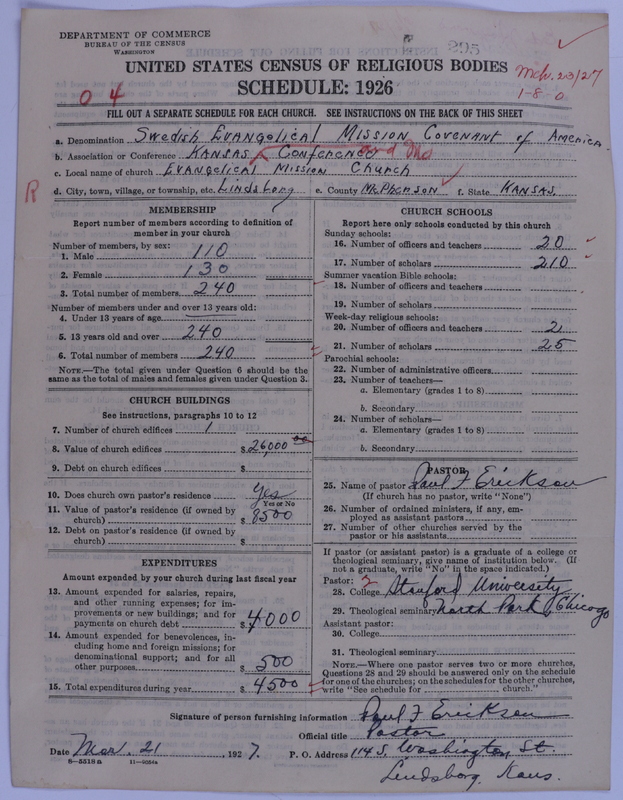 DEPARTMENT OF COMMERCE
BUREAU OF THE CENSUS
WASHINGTON
295
UNITED STATES CENSUS OF RELIGIOUS BODIES
SCHEDULE: 1926
Mch. 23/27
1-8-0
0 4
FILL OUT A SEPARATE SCHEDULE FOR EACH CHURCH. SEE INSTRUCTIONS ON THE BACK OF THIS SHEET
a. Denomination Swedish Evangelical Mission Covenant of America
b. Association or Conference Kansas Conference and Mo
c. Local name of church Evangelical Mission Church
R
d. City, town, village, or township, etc. Lindsborg e. County McPherson f. State Kansas.
MEMBERSHIP
Report number of members according to definition of
member in your church
Number of members, by sex:
1. Male 110
2. Female 130
3. Total number of members 240
Number of members under and over 13 years old:
4. Under 13 years of age
5. 13 years old and over 240
6. Total number of members 240
NOTE.—The total given under Question 6 should be the
same as the total of males and females given under Question 3.
CHURCH BUILDINGS
See instructions, paragraphs 10 to 12
7. Number of church edifices 1
8. Value of church edifices $26,000 00
9. Debt on church edifices $
10. Does church own pastor's residence Yes
Yes or No
11. Value of pastor's residence (if owned by
church) $ 8500
12. Debt on pastor's residence (if owned by
church) $
EXPENDITURES
Amount expended by your church during last fiscal year
13. Amount expended for salaries, repairs,
and other running expenses; for im-
provements or new buildings; and for
payments on church debt $ 4000
14. Amount expended for benevolences, in-
cluding home and foreign missions; for
denominational support; and for all
other purposes $ 500
15. Total expenditures during year $ 4500
CHURCH SCHOOLS
Report here only schools conducted by this church
Sunday schools:
16. Number of officers and teachers 20
17. Number of scholars 210
Summer vacation Bible schools:
18. Number of officers and teachers
19. Number of scholars
Week-day religious schools:
20. Number of officers and teachers 2
21. Number of scholars 25
Parochial schools:
22. Number of administrative officers
23. Number of teachers—
a. Elementary (grades 1 to 8)
b. Secondary
24. Number of scholars—
a. Elementary (grades 1 to 8)
b. Secondary
PASTOR
25. Name of pastor Paul F Erickson
(If church has no pastor, write "None")
26. Number of ordained ministers, if any, em-
ployed as assistant pastors
27. Number of other churches served by the
pastor or his assistants
If pastor (or assistant pastor) is a graduate of a college or
theological seminary, give name of institution below. (If
not a graduate, write "No" in the space indicated.)
Pastor: 2
28. College Stanford University
29. Theological seminary North Park Chicago
Assistant pastor:
30. College
31. Theological seminary
NOTE.—Where one pastor serves two or more churches,
Questions 28 and 29 should be answered only on the schedule
for one of the churches; on the schedules for the other churches,
write "See schedule for church."
Signature of person furnishing information Paul F Erickson
Official title Pastor
Date Mar. 21, 1927. P. O. Address 114 S. Washington St.
8-5518a 11-9554a
Lindsborg, Kans.